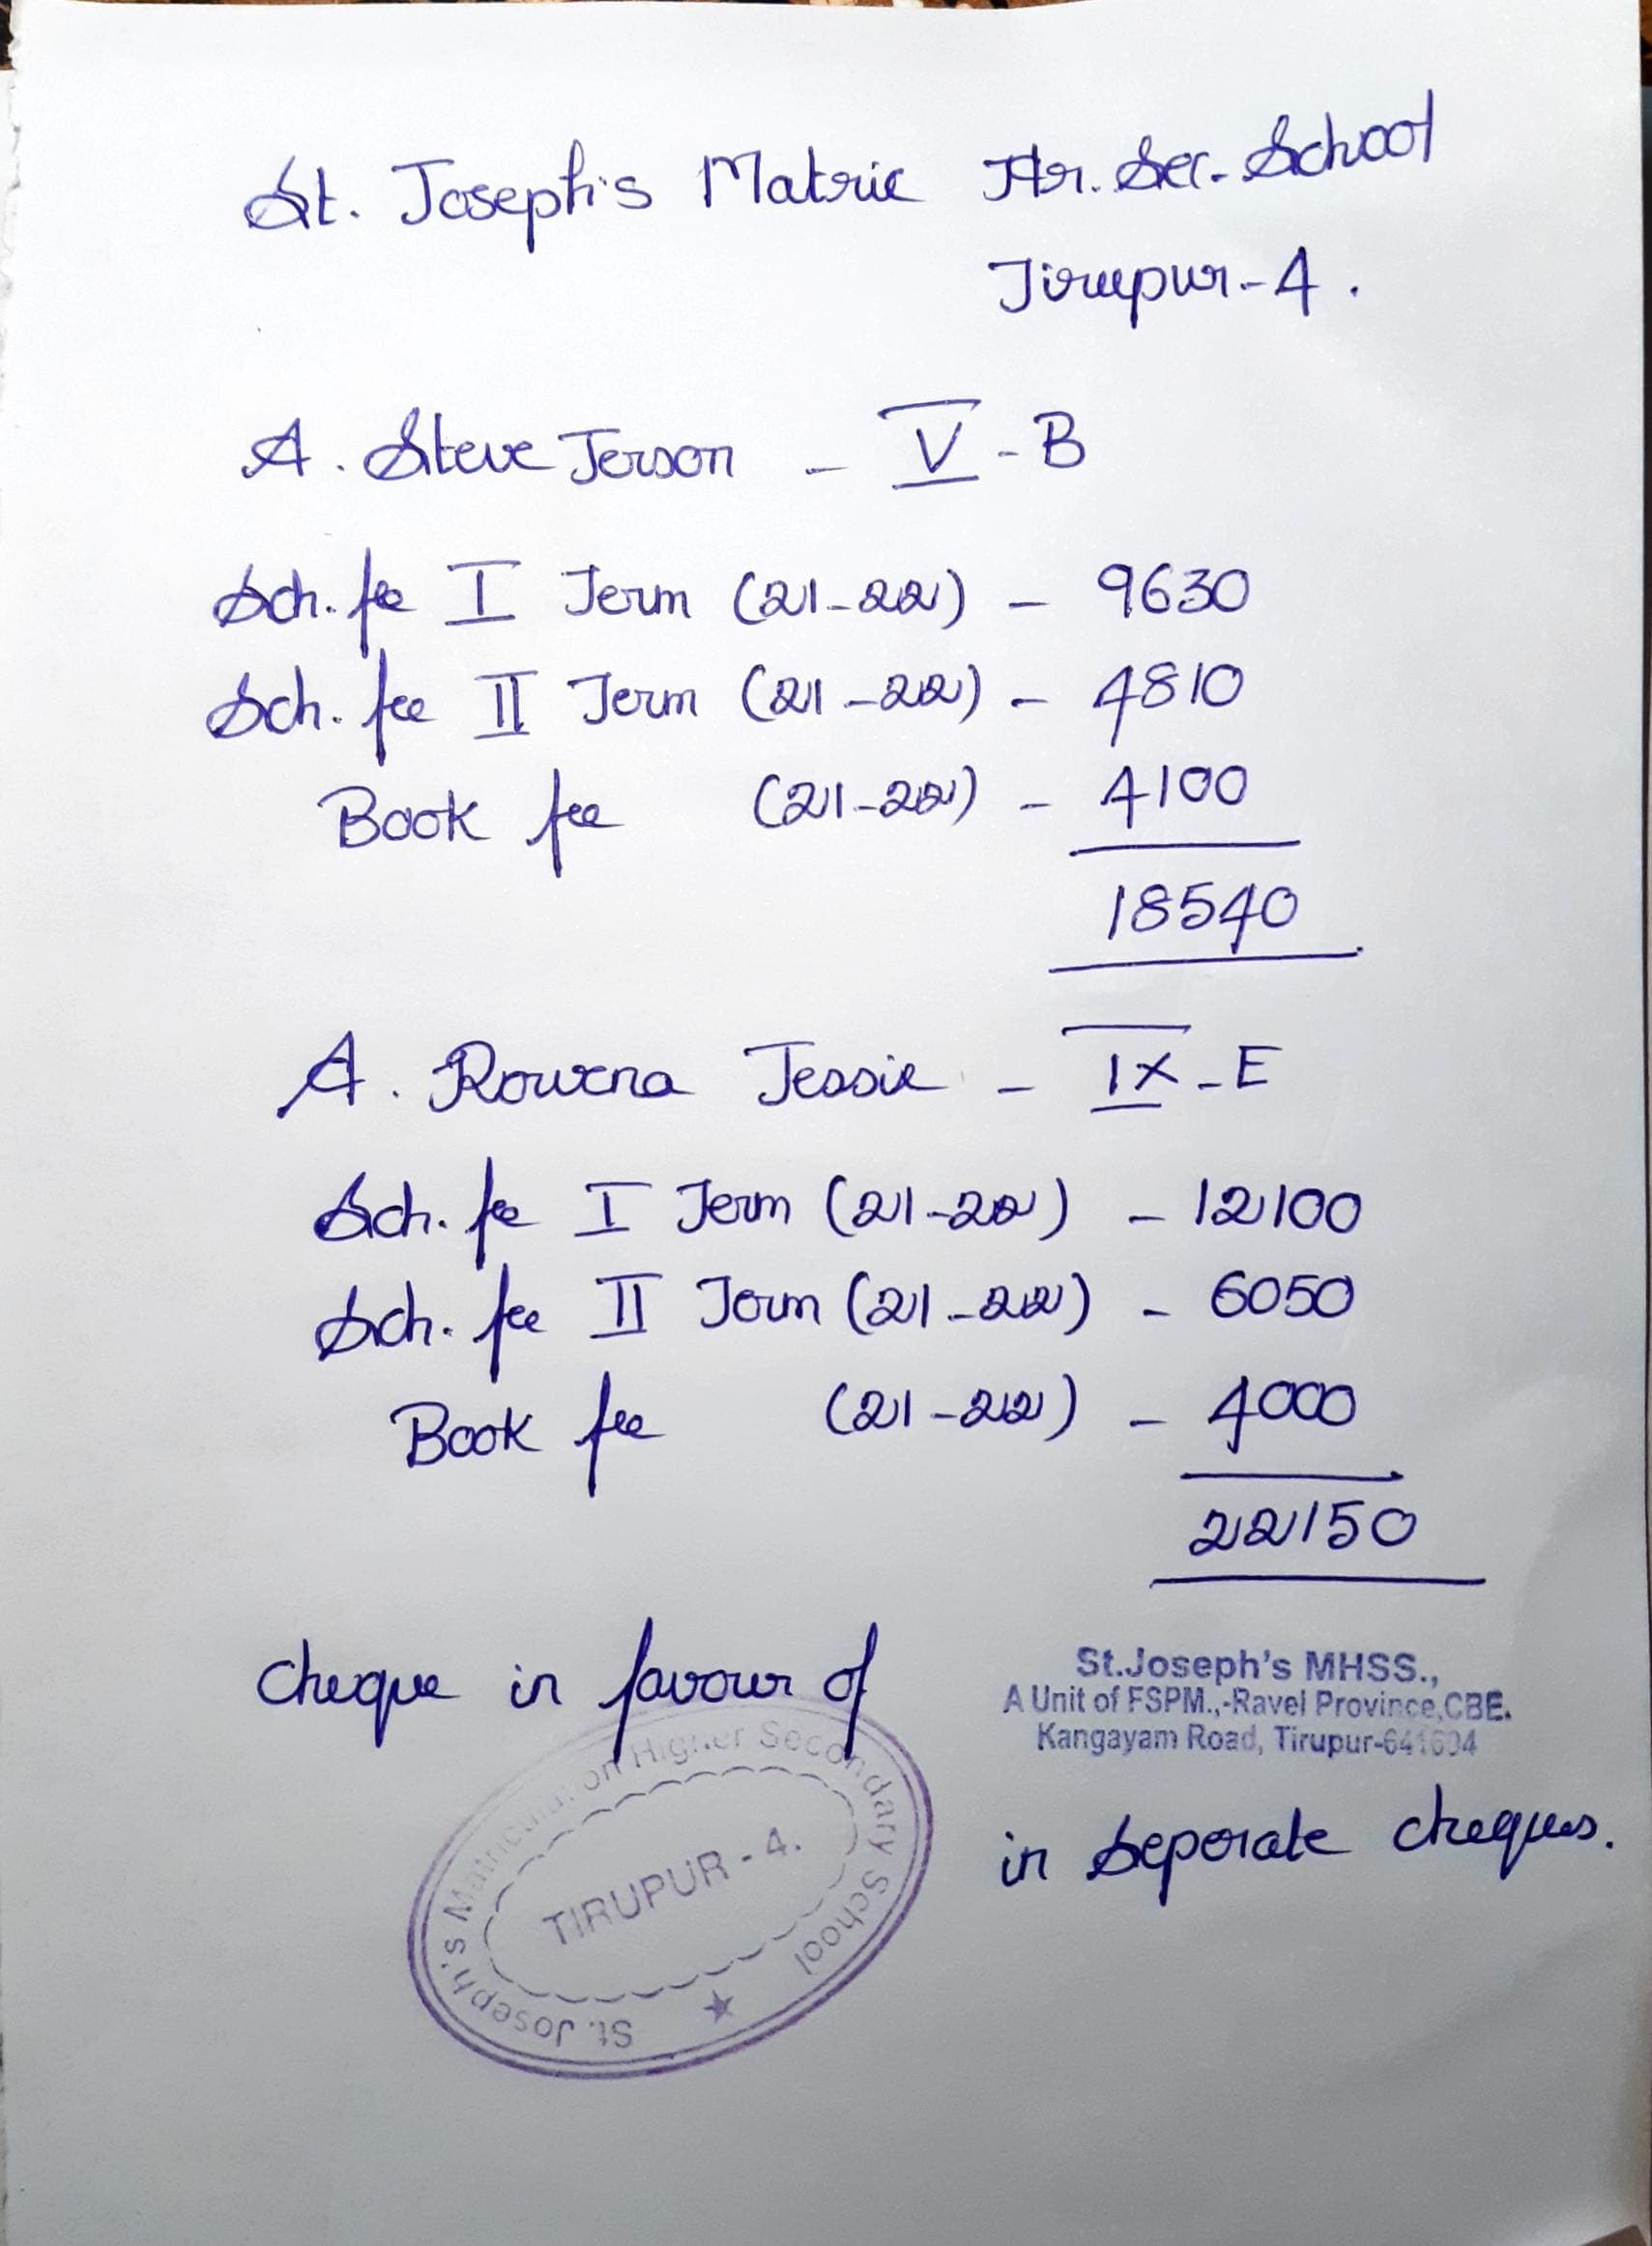 St. Joseph's Matric Hr. Sec. School
Tirupur-4.
A. Steve Jerson - V - B
Sch. fee I Term (21-22) - 9630
Sch. fee II Term (21-22) - 4810
Book fee (21-22) - 4100
18540
A. Rowena Jessie - IX - E
Sch. fee I Term (21-22) - 12100
Sch. fee II Term (21-22) - 6050
Book fee (21-22) - 4000
22150
cheque in favour of
St.Joseph's MHSS.,
A Unit of FSPM.,-Ravel Province,CBE.
Kangayam Road, Tirupur-641604
in seperate cheques.
St. Joseph's Matriculation Higher Secondary School
TIRUPUR - 4.